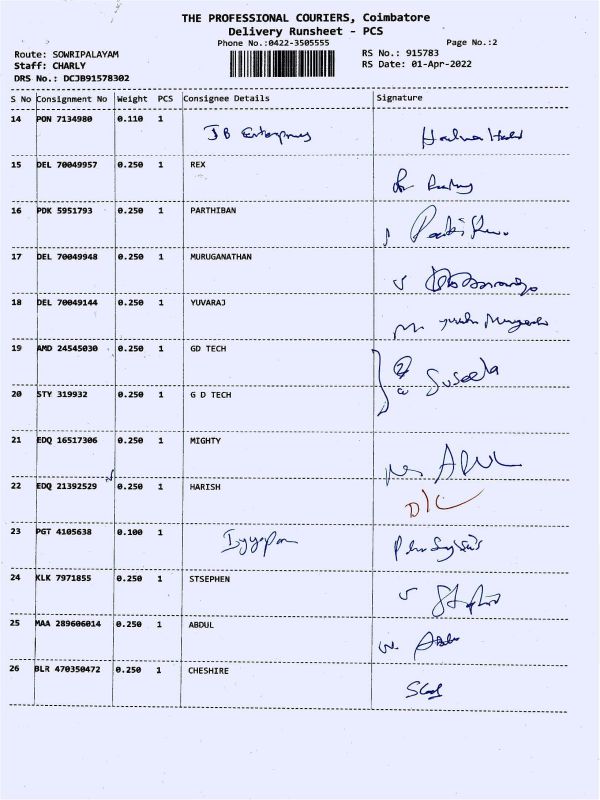 THE PROFESSIONAL COURIERS, Coimbatore
Delivery Runsheet - PCS
Phone No.:0422-3505555 Page No.:2
Route: SOWRIPALAYAM RS No.: 915783
Staff: CHARLY RS Date: 01-Apr-2022
DRS No.: DCJB91578302
S No Consignment No Weight PCS Consignee Details Signature
14 PON 7134980 0.110 1 J B Enterprises
15 DEL 70049957 0.250 1 REX
16 PDK 5951793 0.250 1 PARTHIBAN
17 DEL 70049948 0.250 1 MURUGANATHAN
18 DEL 70049144 0.250 1 YUVARAJ
19 AMD 24545030 0.250 1 GD TECH Suseela
20 STY 319932 0.250 1 G D TECH
21 EDQ 16517306 0.250 1 MIGHTY
22 EDQ 21392529 0.250 1 HARISH D/C
23 PGT 4105638 0.100 1 Iyyapan
24 KLK 7971855 0.250 1 STSEPHEN
25 MAA 289606014 0.250 1 ABDUL
26 BLR 470350472 0.250 1 CHESHIRE